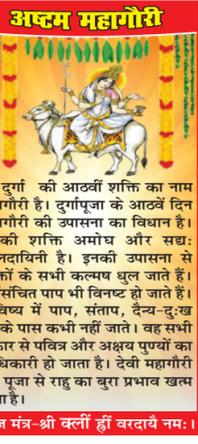 अष्टम महागौरी
दुर्गा की आठवीं शक्ति का नाम
गौरी है। दुर्गापूजा के आठवें दिन
गौरी की उपासना का विधान है।
की शक्ति अमोघ और सद्यः
दायिनी है। इनकी उपासना से
के सभी कल्मष धुल जाते हैं।
संचित पाप भी विनष्ट हो जाते हैं।
में पाप, संताप, दैन्य-दुःख
के पास कभी नहीं जाते। वह सभी
से पवित्र और अक्षय पुण्यों का
हो जाता है। देवी महागौरी
पूजा से राहु का बुरा प्रभाव खत्म
है।
मंत्र-श्री क्लीं ह्रीं वरदायै नमः।